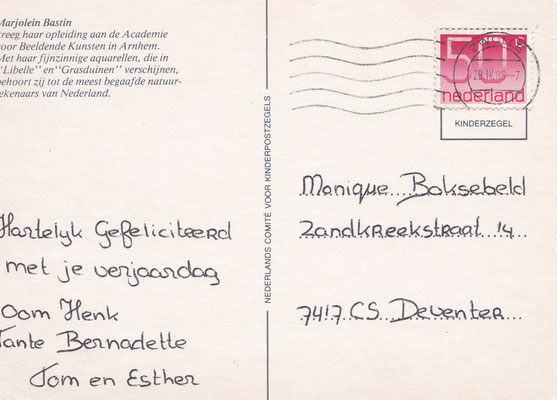 Marjolein Bastin
reeg haar opleiding aan de Academie
oor Beeldende Kunsten in Arnhem.
Met haar fijnzinnige aquarellen, die in
"Libelle" en "Grasduinen" verschijnen,
behoort zij tot de meest begaafde natuur-
ekenaars van Nederland.
Hartelyk Gefeliciteerd
met je verjaardag
Oom Henk
Tante Bernadette
Tom en Esther
NEDERLANDS COMITÉ VOOR KINDERPOSTZEGELS
50 c
nederland
KINDERZEGEL
Monique Boksebeld
Zandkreekstraat 14
7417 CS Deventer